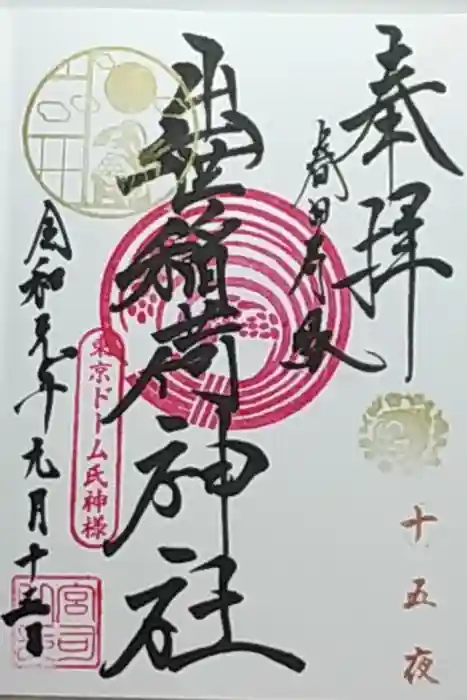 奉拝
春日局
出世稲荷神社
令和元年九月十三日
東京ドーム氏神様
十五夜